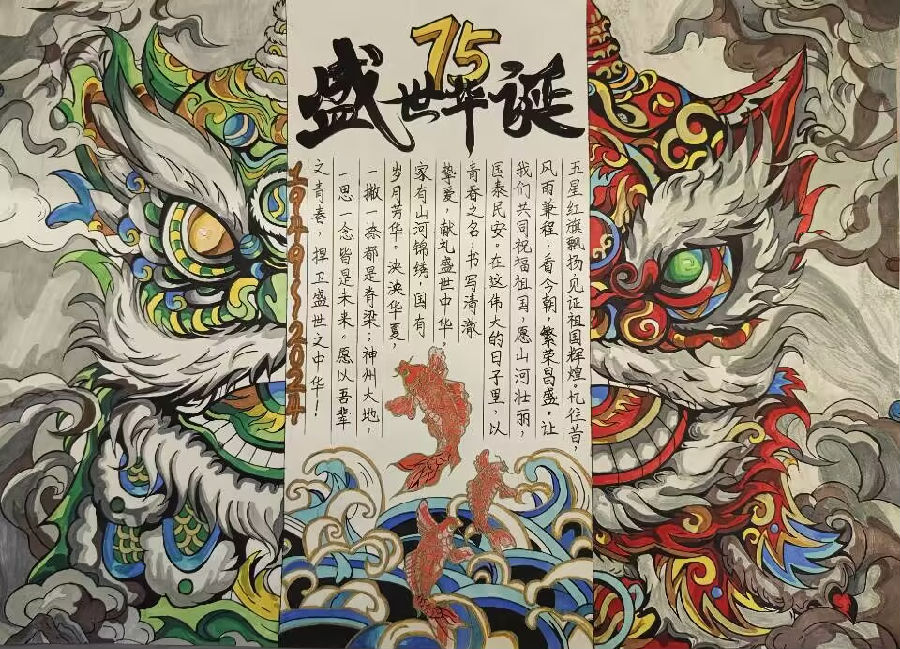 75
盛世华诞
五星红旗飘扬,见证祖国辉煌。忆往昔,
风雨兼程;看今朝,繁荣昌盛。让
我们共同祝福祖国,愿山河壮丽,
国泰民安。在这伟大的日子里,以
青春之名,书写清澈
挚爱,献礼盛世中华,
家有山河锦绣,国有
岁月芳华。泱泱华夏,
一撇一捺都是脊梁;神州大地,
一思一念皆是未来。愿以吾辈
之青春,捍卫盛世之中华!
1949~2024